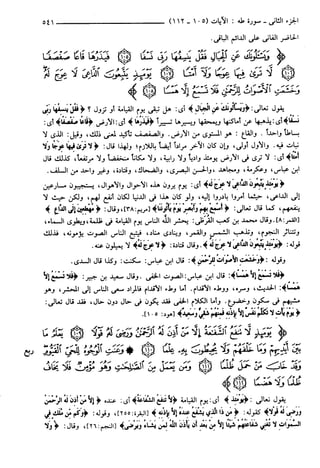 الجزء الثانى - سورة طه : الآيات (١٠٥ - ١١٢) ــــــــــــ ٥٤١
الحاضر الفانى على الدائم الباقى.
﴿ وَيَسْأَلُونَكَ عَنِ الْجِبَالِ فَقُلْ يَنسِفُهَا رَبِّي نَسْفًا ﴿١٠٥﴾ فَيَذَرُهَا قَاعًا صَفْصَفًا
﴿١٠٦﴾ لَّا تَرَىٰ فِيهَا عِوَجًا وَلَا أَمْتًا ﴿١٠٧﴾ يَوْمَئِذٍ يَتَّبِعُونَ الدَّاعِيَ لَا عِوَجَ لَهُ
وَخَشَعَتِ الْأَصْوَاتُ لِلرَّحْمَٰنِ فَلَا تَسْمَعُ إِلَّا هَمْسًا ﴿١٠٨﴾
يقول تعالى: ﴿وَيَسْأَلُونَكَ عَنِ الْجِبَالِ﴾ أى: هل تبقى يوم القيامة أو تزول ؟ ﴿فَقُلْ يَنسِفُهَا رَبِّي
نَسْفًا﴾ أى: يذهبها عن أماكنها ويمحقها ويسيرها تسييراً ﴿فَيَذَرُهَا﴾ أى: الأرض ﴿قَاعًا صَفْصَفًا﴾ أى:
بساطاً واحداً. والقاع : هو المستوى من الأرض. والصفصف تأكيد لمعنى ذلك، وقيل: الذى لا
نبات فيه. والأول أولى، وإن كان الآخر مراداً أيضاً باللازم؛ ولهذا قال: ﴿لا تَرَىٰ فِيهَا عِوَجًا وَلا
أَمْتًا﴾ أى: لا ترى فى الأرض يومئذ وادياً ولا رابية، ولا مكاناً منخفضاً ولا مرتفعاً، كذلك قال
ابن عباس، وعكرمة، ومجاهد، والحسن البصرى، والضحاك، وقتادة، وغير واحد من السلف.
﴿يَوْمَئِذٍ يَتَّبِعُونَ الدَّاعِيَ لا عِوَجَ لَهُ﴾ أى: يوم يرون هذه الأحوال والأهوال، يستجيبون مسارعين
إلى الداعى، حيثما أمروا بادروا إليه، ولو كان هذا فى الدنيا لكان أنفع لهم، ولكن حيث لا
ينفعهم، كما قال تعالى: ﴿أَسْمِعْ بِهِمْ وَأَبْصِرْ يَوْمَ يَأْتُونَنَا﴾ [مريم:٣٨]، وقال: ﴿مُهْطِعِينَ إِلَى الدَّاعِ﴾
[القمر:٨]. وقال محمد بن كعب القرظى: يحشر الله الناس يوم القيامة فى ظلمة، ويطوى السماء،
وتتناثر النجوم، وتذهب الشمس والقمر، وينادى مناد، فيتبع الناس الصوت يؤمونه، فذلك
قوله: ﴿يَوْمَئِذٍ يَتَّبِعُونَ الدَّاعِيَ لا عِوَجَ لَهُ﴾. وقال قتادة: ﴿لا عِوَجَ لَهُ﴾ لا يميلون عنه.
وقوله: ﴿وَخَشَعَتِ الأَصْوَاتُ لِلرَّحْمَٰنِ﴾: قال ابن عباس: سكنت: وكذا قال السدى.
﴿فَلا تَسْمَعُ إِلاَّ هَمْسًا﴾: قال ابن عباس: الصوت الخفى. وقال سعيد بن جبير: ﴿فَلا تَسْمَعُ إِلاَّ
هَمْسًا﴾: الحديث، وسره، ووطء الأقدام. أما وطء الأقدام فالمراد سعى الناس إلى المحشر، وهو
مشيهم فى سكون وخضوع. وأما الكلام الخفى فقد يكون فى حال دون حال، فقد قال تعالى:
﴿يَوْمَ يَأْتِ لا تَكَلَّمُ نَفْسٌ إِلاَّ بِإِذْنِهِ فَمِنْهُمْ شَقِيٌّ وَسَعِيدٌ﴾ [هود: ١٠٥].
﴿ يَوْمَئِذٍ لَّا تَنفَعُ الشَّفَاعَةُ إِلَّا مَنْ أَذِنَ لَهُ الرَّحْمَٰنُ وَرَضِيَ لَهُ قَوْلًا ﴿١٠٩﴾ يَعْلَمُ
مَا بَيْنَ أَيْدِيهِمْ وَمَا خَلْفَهُمْ وَلَا يُحِيطُونَ بِهِ عِلْمًا ﴿١١٠﴾ وَعَنَتِ الْوُجُوهُ لِلْحَيِّ الْقَيُّومِ
وَقَدْ خَابَ مَنْ حَمَلَ ظُلْمًا ﴿١١١﴾ وَمَن يَعْمَلْ مِنَ الصَّالِحَاتِ وَهُوَ مُؤْمِنٌ فَلَا يَخَافُ
ظُلْمًا وَلَا هَضْمًا ﴿١١٢﴾
يقول تعالى: ﴿يَوْمَئِذٍ﴾ أى: يوم القيامة ﴿لا تَنفَعُ الشَّفَاعَةُ﴾ أى: عنده ﴿إِلاَّ مَنْ أَذِنَ لَهُ الرَّحْمَٰنُ
وَرَضِيَ لَهُ قَوْلًا﴾ كقوله: ﴿مَن ذَا الَّذِي يَشْفَعُ عِندَهُ إِلاَّ بِإِذْنِهِ﴾ [البقرة:٢٥٥]، وقوله: ﴿وَكَم مِّن مَّلَكٍ فِي
السَّمَوَاتِ لا تُغْنِي شَفَاعَتُهُمْ شَيْئًا إِلاَّ مِنْ بَعْدِ أَن يَأْذَنَ اللَّهُ لِمَن يَشَاءُ وَيَرْضَىٰ﴾ [النجم:٢٦]، وقال: ﴿وَلا
ربع